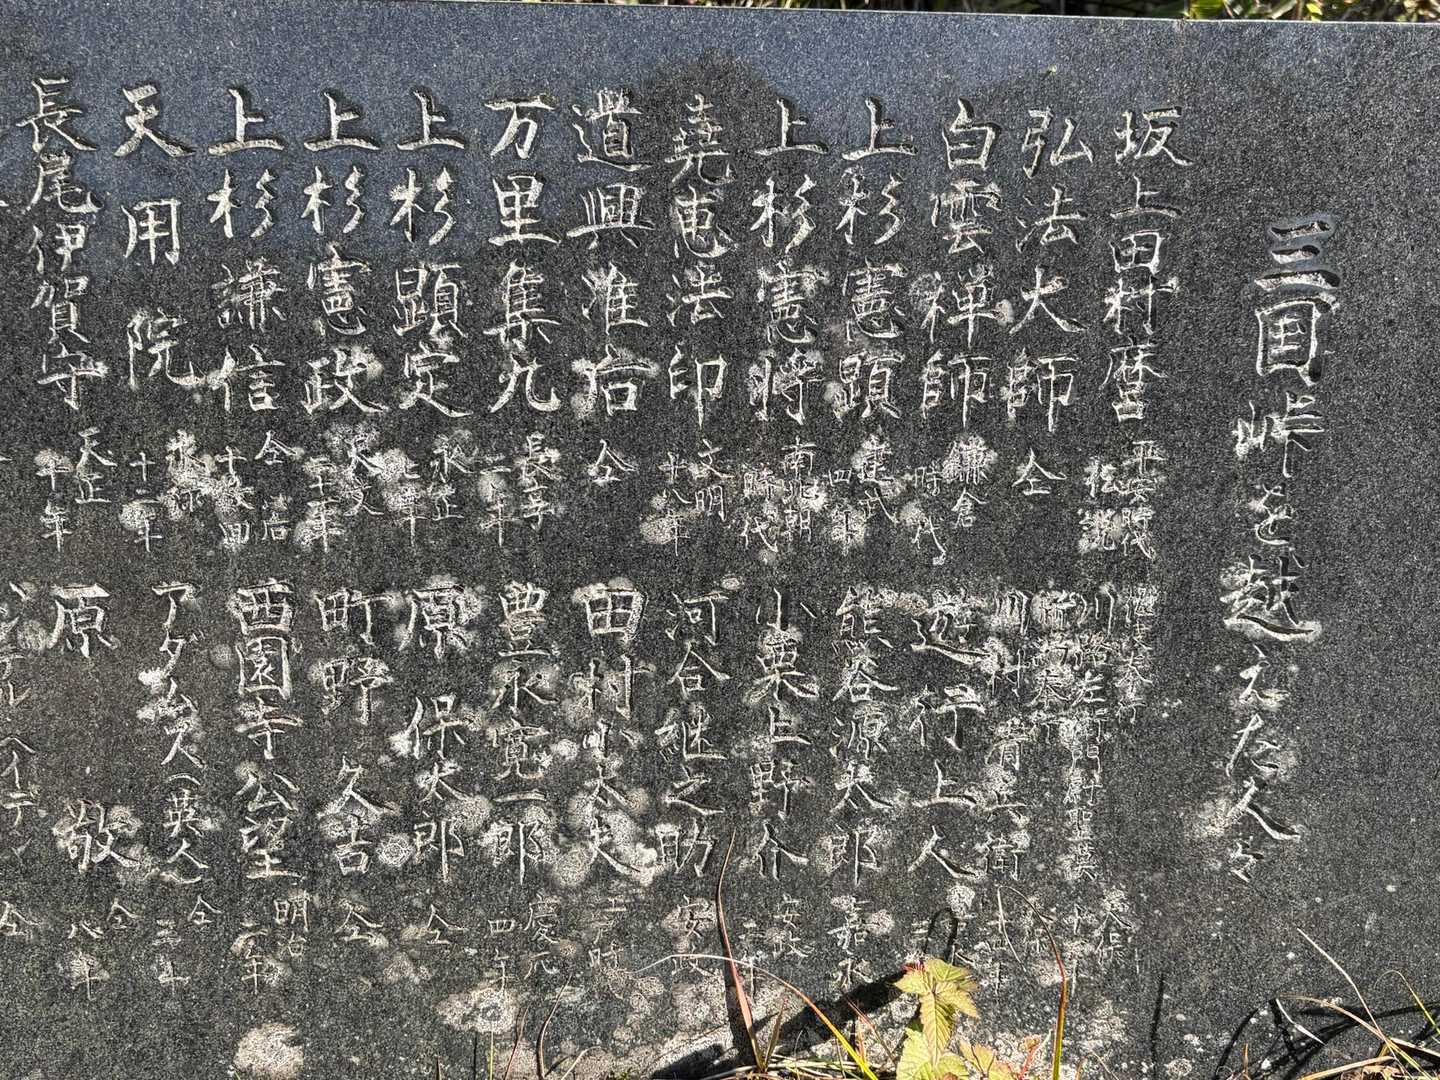 三国峠を越えた人々
坂上田村麿 平安時代 伝説
弘法大師 仝
白雲禅師 鎌倉時代
上杉憲顕 建武四年
上杉憲将 南北朝時代
堯恵法印 文明十八年
道興准后 仝
万里集九 長享二年
上杉顕定 永正七年
上杉憲政 天文二十一年
上杉謙信 仝
天用院 十二年
長尾伊賀守 天正十年
川路左衛門尉聖謨 天保
川村 兵衛
遊行上人
熊谷源太郎 嘉永
小栗上野介 安政二年
河合継之助 安政
田村小太夫 仝 時
豊永寛一郎 慶応四年
原 保太郎 仝
町野久吉 仝
西園寺公望 明治二年
アダムス(英人) 仝 三年
原 敬 仝 八年